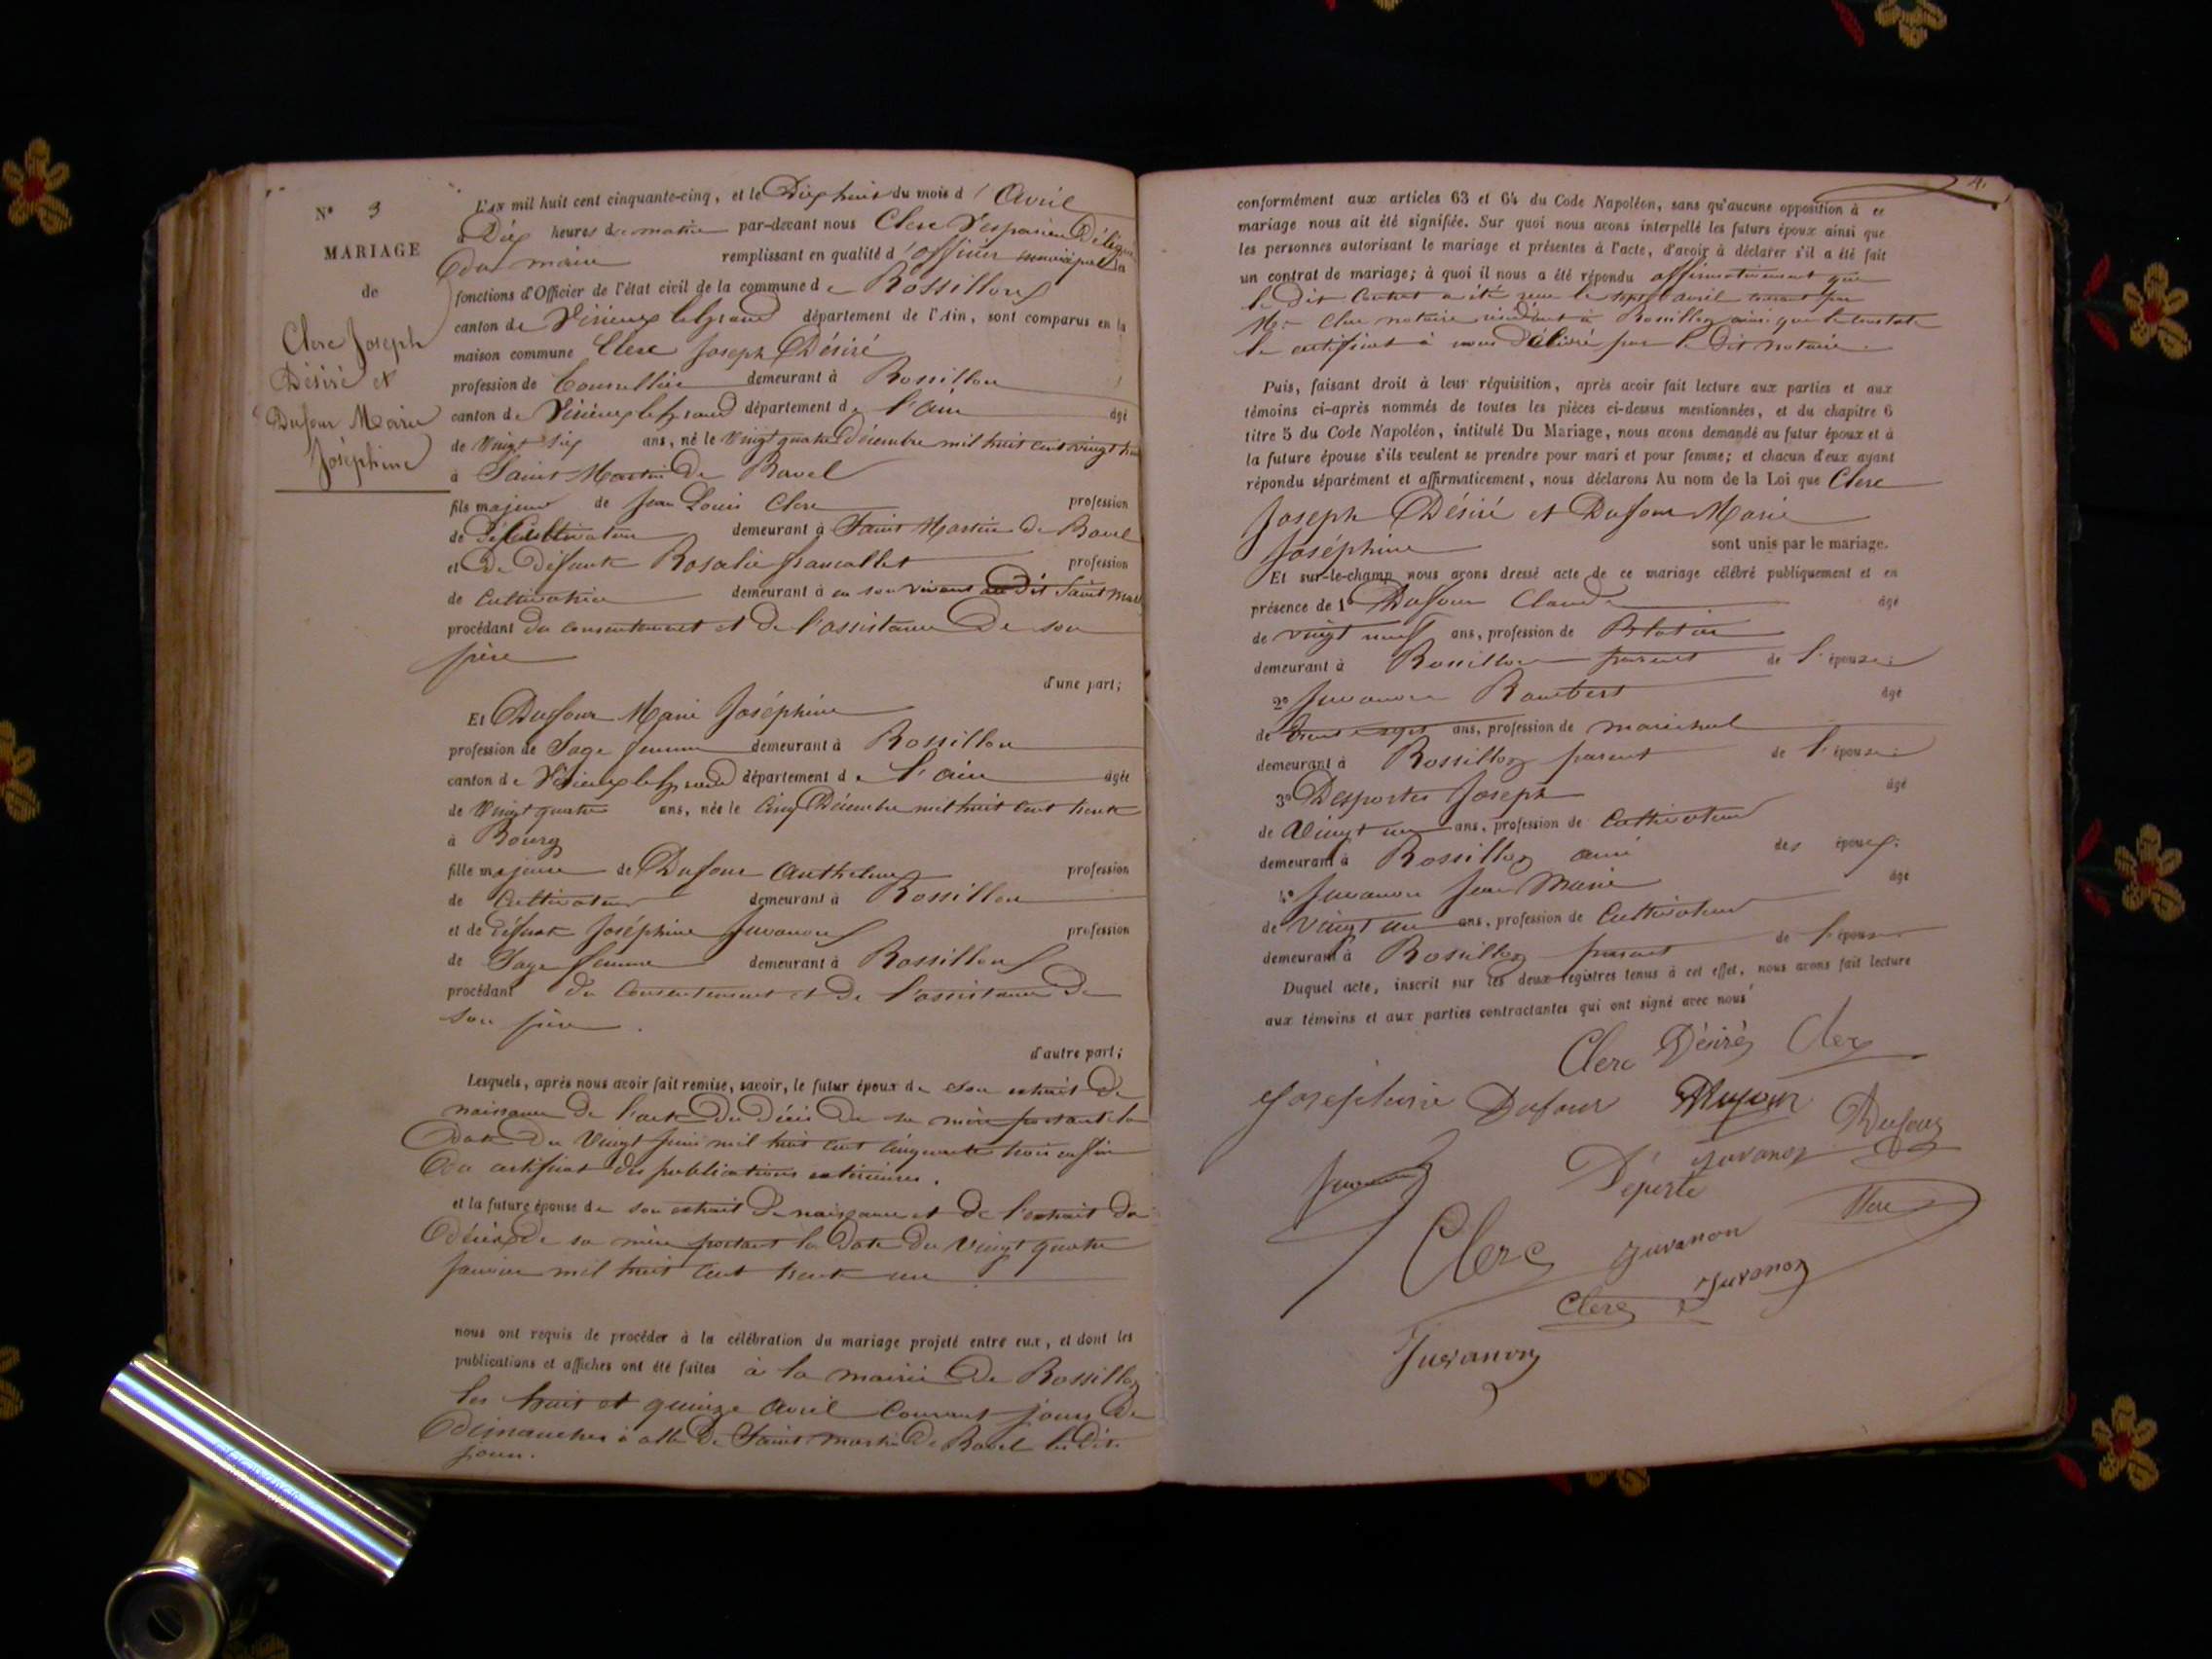 N° 3
MARIAGE
de
Clerc Joseph
Désiré et
Dufour Marie
Joséphine
L'an mil huit cent cinquante-cinq, et le Dix huit du mois d'Avril
à Dix heures du matin par-devant nous Clerc Vespasien Délégué
du maire remplissant en qualité d'officier municipal la
fonctions d'Officier de l'état civil de la commune de Rossillon
canton de Virieux le grand département de l'Ain, sont comparus en la
maison commune Clerc Joseph Désiré
profession de demeurant à Rossillon
canton de Virieux le grand département de l'ain âgé
de Vingt six ans, né le Vingt quatre Décembre mil huit cent vingt huit
à Saint Martin De Bavel
fils majeur de Jean Louis Clerc profession
de Cultivateur demeurant à Saint Martin De Bavel
et De Défunte Rosalie francallet profession
de Cultivatrice demeurant à en son vivant au Dit Saint Mar
procédant du consentement et De l'assistance De son
père
d'une part;
Et Dufour Marie Joséphine
profession de Sage femme demeurant à Rossillon
canton de Virieux le grand département de l'ain âgée
de Vingt quatre ans, née le Cinq Décembre mil huit cent trente
à Bourg
fille majeure de Dufour Anthelme profession
de Cultivateur demeurant à Rossillon
et de défunte Joséphine Juvanon profession
de Sage femme demeurant à Rossillon
procédant du Consentement et De l'assistance De
son père.
d'autre part;
Lesquels, après nous avoir fait remise, savoir, le futur époux de son extrait De
naissance De l'acte Du Décès De sa mère portant la
Date Du Vingt Juin mil huit cent cinquante trois enfin
Du certificat Des publications extérieures.
et la future épouse de son extrait De naissance et De l'extrait du
Décès De sa mère portant la Date Du Vingt quatre
Janvier mil huit cent trente un
nous ont requis de procéder à la célébration du mariage projeté entre eux, et dont les
publications et affiches ont été faites à la mairie De Rossillon
les huit et quinze Avril Courant jours De
Dimanches à celle De Saint Martin De Bavel les Dits
jours.
4.
conformément aux articles 63 et 64 du Code Napoléon, sans qu'aucune opposition à ce
mariage nous ait été signifiée. Sur quoi nous avons interpellé les futurs époux ainsi que
les personnes autorisant le mariage et présentes à l'acte, d'avoir à déclarer s'il a été fait
un contrat de mariage; à quoi il nous a été répondu affirmativement que
le Dit Contrat a été reçu le sept avril courant par
Me Clerc notaire résidant à Rossillon ainsi que le constate
le certificat à nous Délivré par le Dit notaire.
Puis, faisant droit à leur réquisition, après avoir fait lecture aux parties et aux
témoins ci-après nommés de toutes les pièces ci-dessus mentionnées, et du chapitre 6
titre 5 du Code Napoléon, intitulé Du Mariage, nous avons demandé au futur époux et à
la future épouse s'ils veulent se prendre pour mari et pour femme; et chacun d'eux ayant
répondu séparément et affirmativement, nous déclarons Au nom de la Loi que Clerc
Joseph Désiré et Dufour Marie
Joséphine sont unis par le mariage.
Et sur-le-champ nous avons dressé acte de ce mariage célébré publiquement et en
présence de 1° Dufour Claude âgé
de vingt neuf ans, profession de
demeurant à Rossillon parent de l'épouse
2° Juvanon Rambert âgé
de trente sept ans, profession de maréchal
demeurant à Rossillon parent de l'épouse
3° Desportes Joseph âgé
de Vingt un ans, profession de Cultivateur
demeurant à Rossillon ami des époux.
4° Juvanon Jean Marie âgé
de Vingt un ans, profession de Cultivateur
demeurant à Rossillon parent de l'épouse
Duquel acte, inscrit sur les deux registres tenus à cet effet, nous avons fait lecture
aux témoins et aux parties contractantes qui ont signé avec nous
Clerc Désiré Clerc
Josephine Dufour Dufour Dufour
Juvanon
Déporte
Clerc Juvanon
Clerc Juvanon
Juvanon